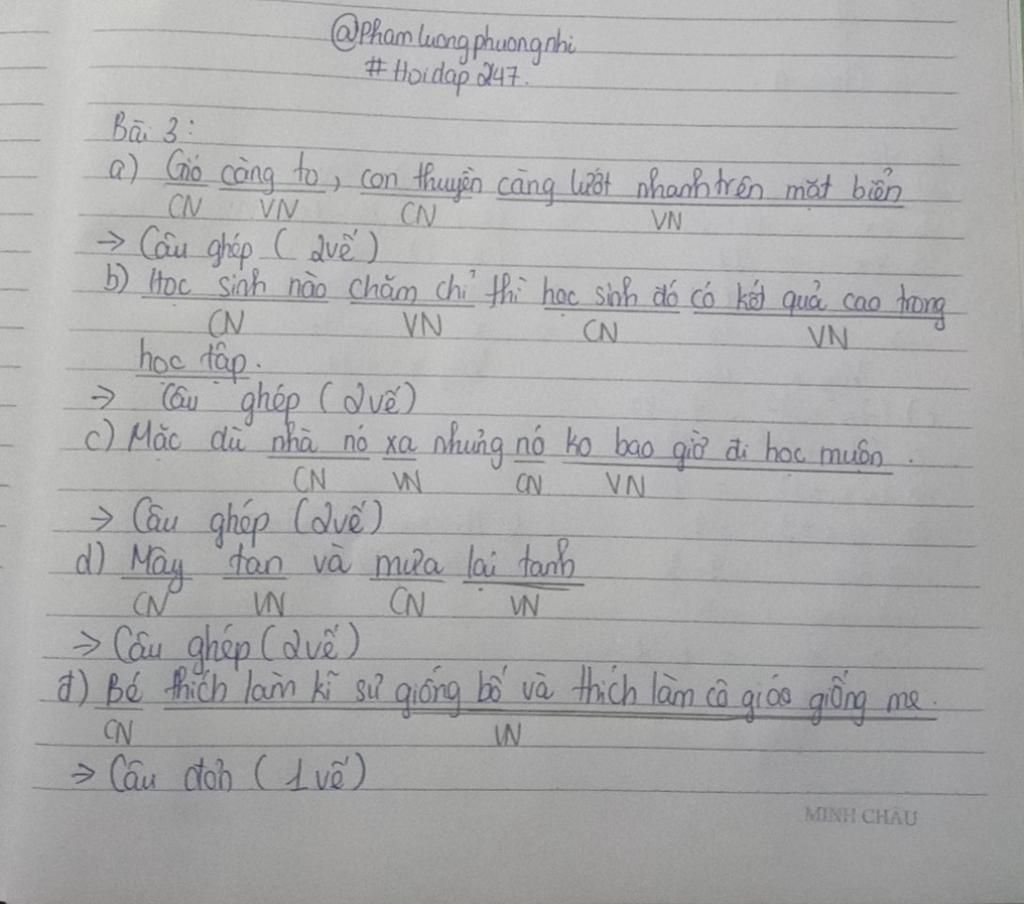 @Phamluongphuongnhi
#Hoidap247.
Bài 3:
a) Gió càng to, con thuyền càng lướt nhanh trên mặt biển
CN VN CN VN
→ Câu ghép (2vế)
b) Học sinh nào chăm chỉ thì học sinh đó có kết quả cao trong
CN VN CN VN
học tập.
→ Câu ghép (2vế)
c) Mặc dù nhà nó xa nhưng nó ko bao giờ đi học muộn.
CN VN CN VN
→ Câu ghép (2vế)
d) Mây tan và mưa lại tạnh
CN VN CN VN
→ Câu ghép (2vế)
đ) Bé thích làm kĩ sư giống bố và thích làm cô giáo giống mẹ.
CN VN
→ Câu đơn (1vế)
MINH CHÂU